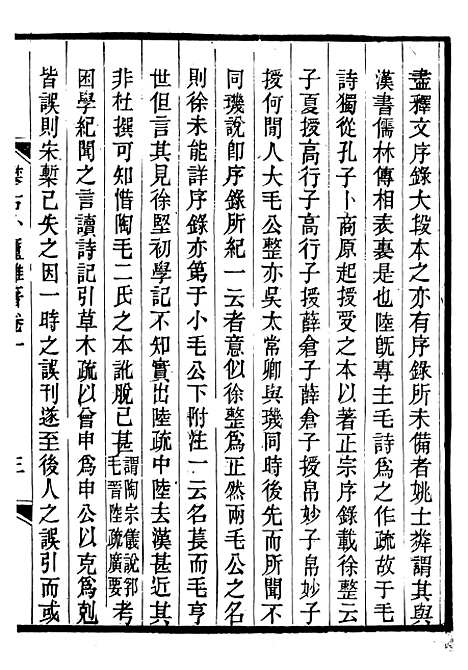 盡釋文序錄大段本之亦有序錄所未備者姚士粦謂其與
漢書儒林傳相表裏是也陸旣專主毛詩爲之作疏故于毛
詩獨從孔子卜商原起授受之本以著正宗序錄載徐整云
子夏授高行子高行子授薛倉子薛倉子授帛妙子帛妙子
授何閒人大毛公整亦吳太常卿與璣同時後先而所聞不
同璣說卽序錄所紀一云者意似徐整爲正然兩毛公之名
則徐未能詳序錄亦第于小毛公下附注一云名萇而毛亨
世但言其見徐堅初學記不知實出陸疏中陸去漢甚近其
非杜撰可知惜陶毛二氏之本訛脫已甚謂陶宗儀說郛毛晉陸疏廣要考
困學紀聞之言讀詩記引草木疏以曾申爲申公以克爲剋
皆誤則朱槧已失之因一時之誤刊遂至後人之誤引而或
雜著卷一
三